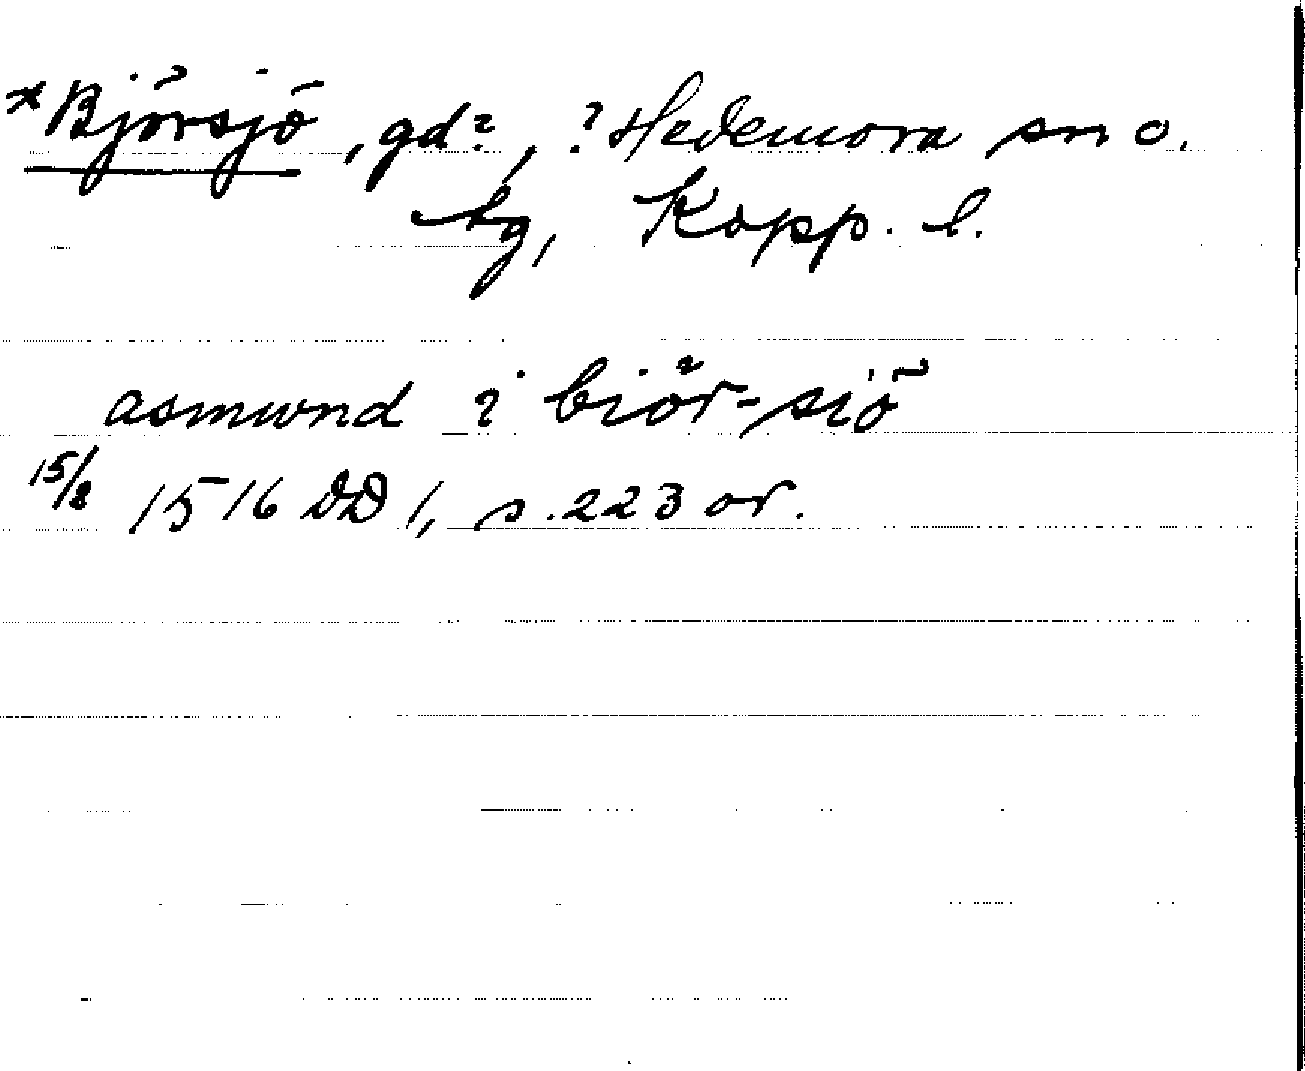 *Björsjö, gd?, ? Hedemora sn o.
hg, Kopp. l.
asmund i biör-siö
15/8 1516 DD 1, s. 223 or.